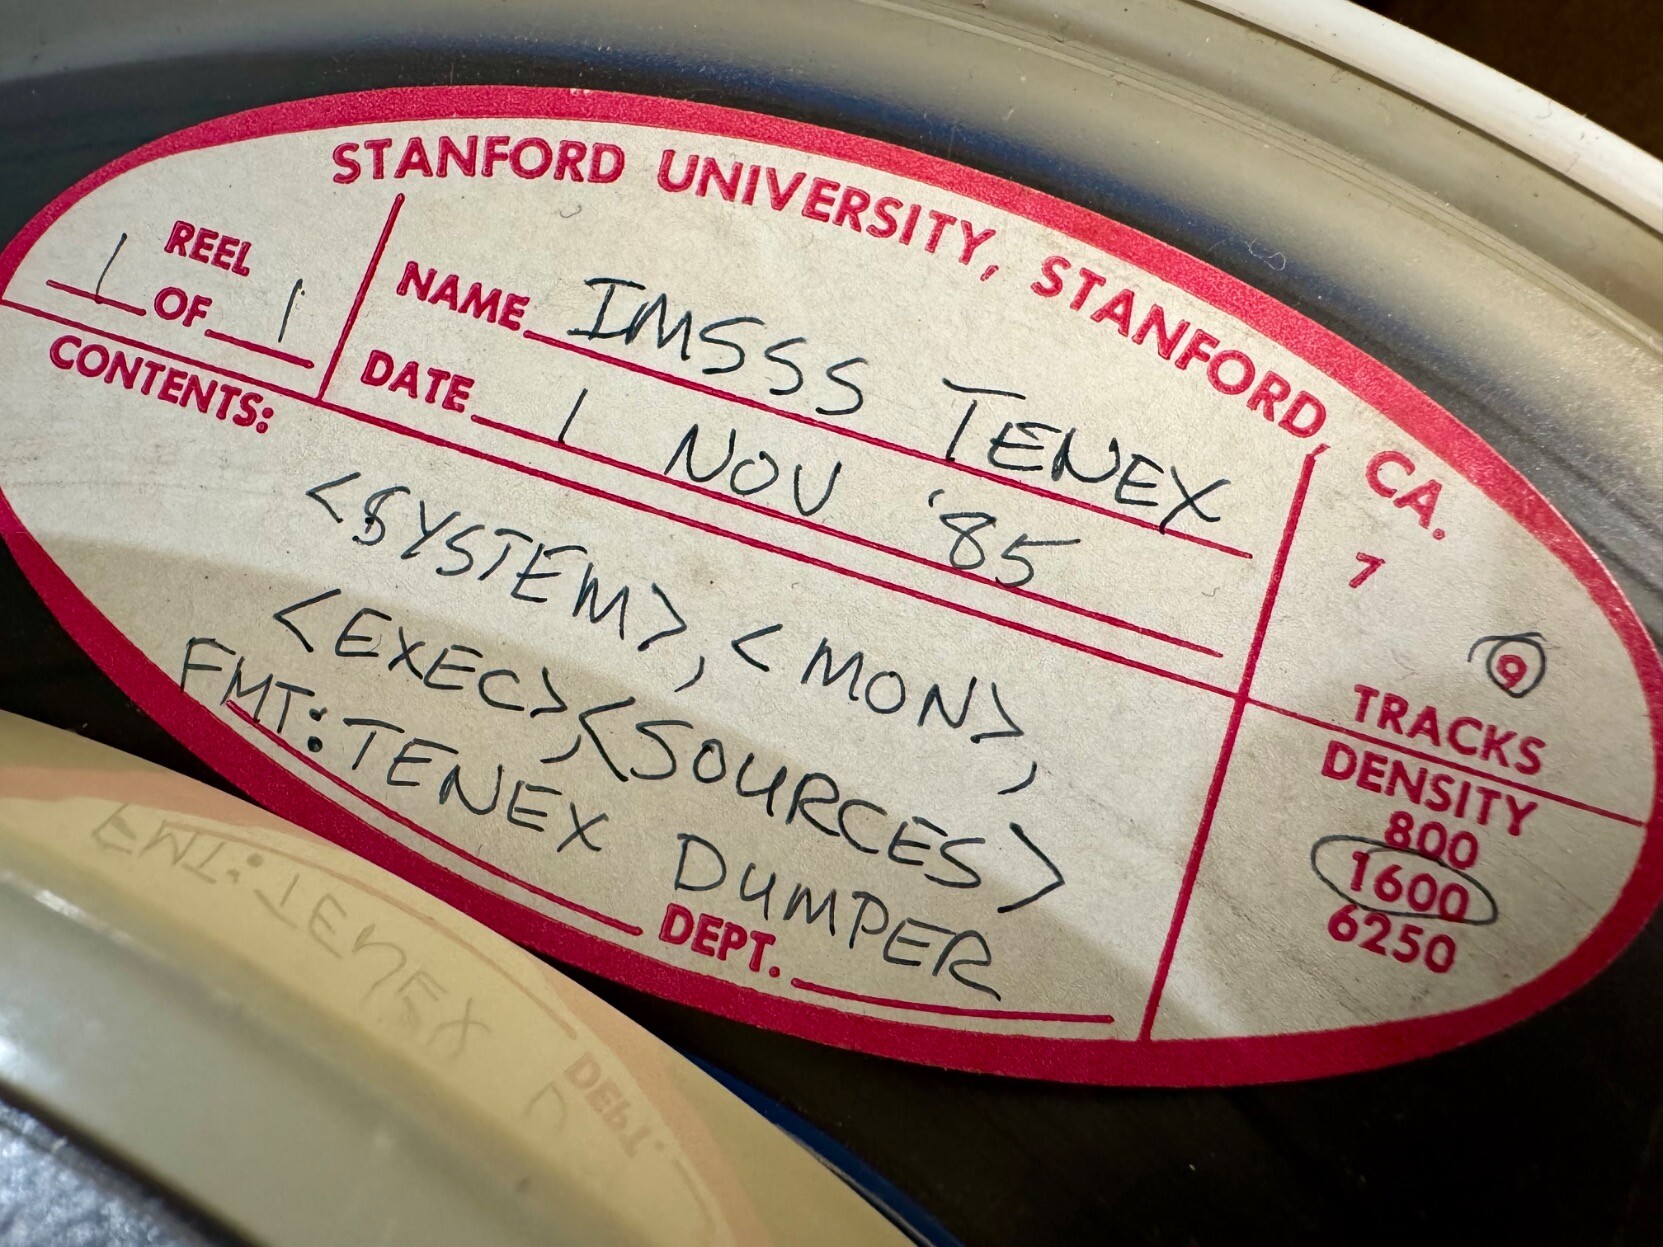 STANFORD UNIVERSITY, STANFORD, CA.
REEL
1 OF 1
NAME IMSSS TENEX
DATE 1 NOV '85
CONTENTS:
<SYSTEM>, <MON>,
<EXEC>, <SOURCES>
FMT: TENEX DUMPER
DEPT.
7
9
TRACKS
DENSITY
800
1600
6250
FMT: TENEX D
DEPT.